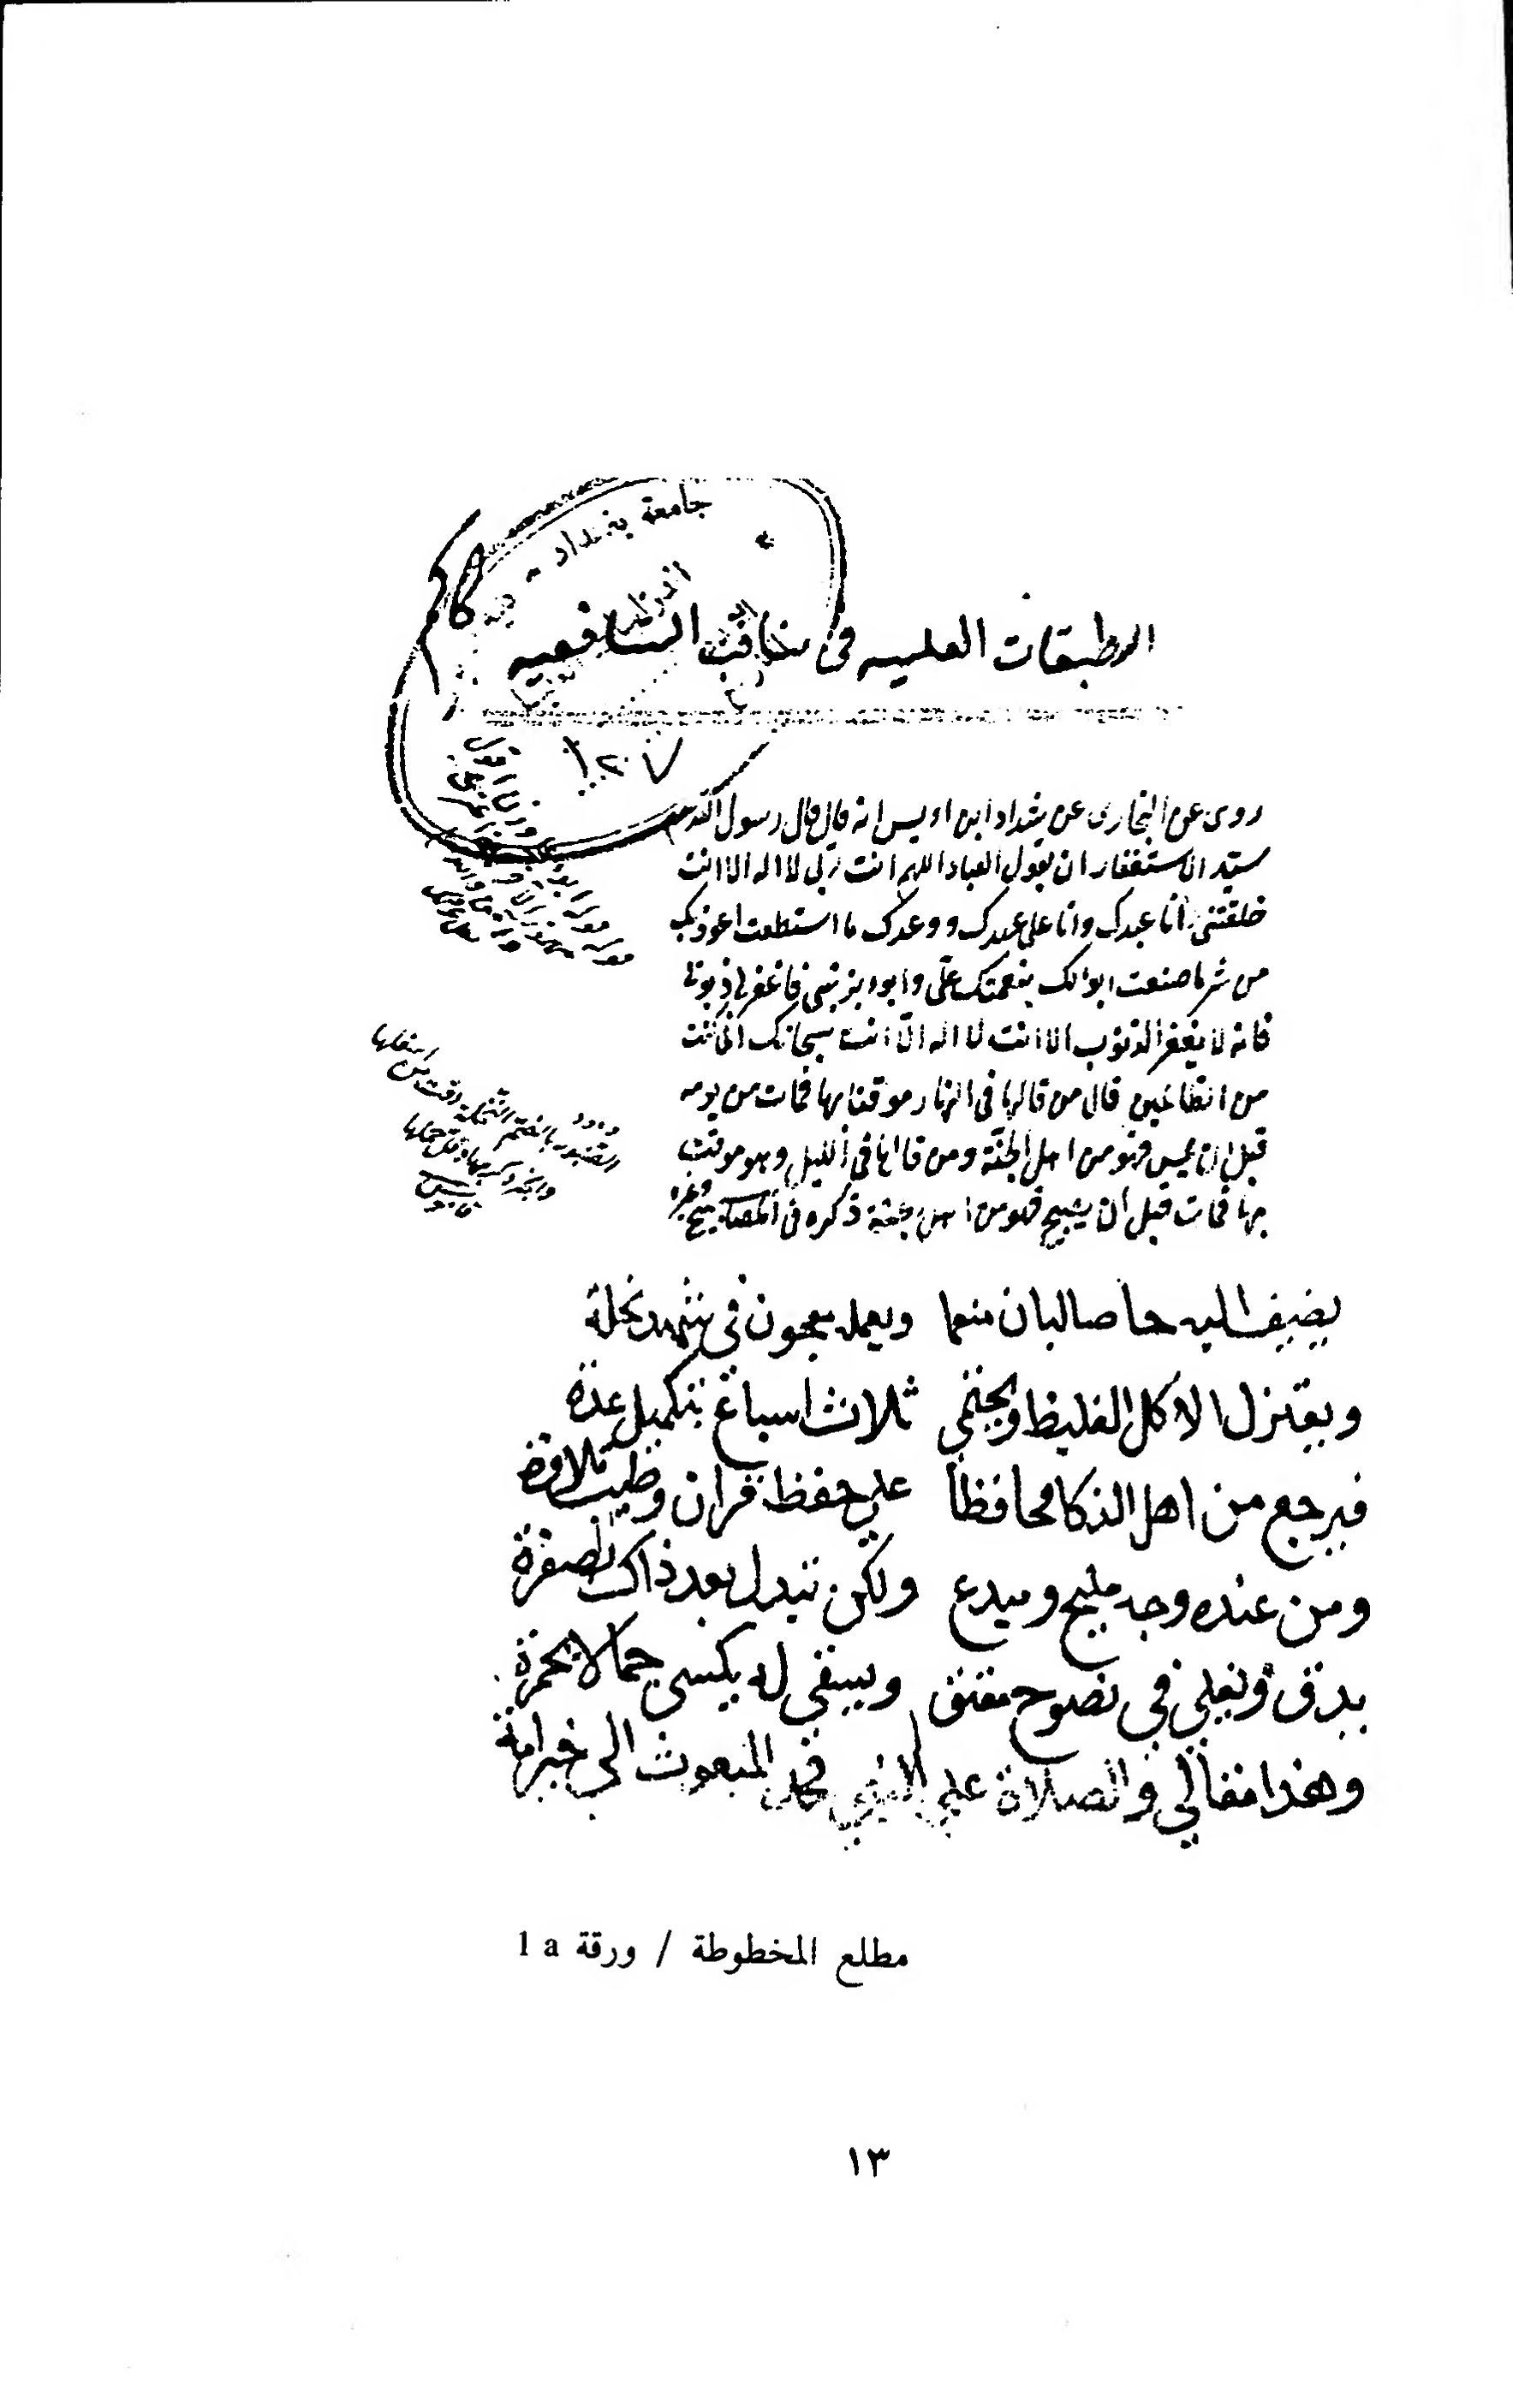 جامعة بغداد -
الطبقات العليه فى مناقب الشافعيه
١٢٠٧
روى عن البخارى عن شداد ابن اويس انه قال قال رسول الله صم
سيّد الاستغفار ان يقول العبد اللهم انت ربى لا اله الا انت
خلقتنى انا عبدك وانا على عهدك ووعدك ما استطعت اعوذ بك
من شر ما صنعت ابوا لك بنعمتك علىّ وابوء بذنبى فاغفر لى ذنوبى
فانه لا يغفر الذنوب الا انت لا اله الّا انت سبحانك انى كنت
من الظالمين قال من قالها فى النهار موقنا بها فمات من يومه
قبل ان يمسى فهو من اهل الجنّة ومن قالها فى الليل وهو موقن
بها فمات قبل ان يصبح فهو من اهل جنة ذكره فى المصابيح وغيره
يضيف اليه حاصالبان منعما ويعمله معجون فى شهد نحلة
ويعتزل الاكل الغليظ ويحتمي ثلاث اسباع بتكميل عدة
فيرجع من اهل الذكا محافظاً علي حفظ قران وطيب تلاوة
ومن عنده وجه مليح وميدع ولكن تبدل بعد ذاك بصفرة
يدق ويغلي في نضوح معتق ويسقي له يكسى جمالا بحمرة
وهذا مقالي والصلاة علي النبي محمد المبعوث الي خير امة
مطلع المخطوطة / ورقة 1 a
١٣